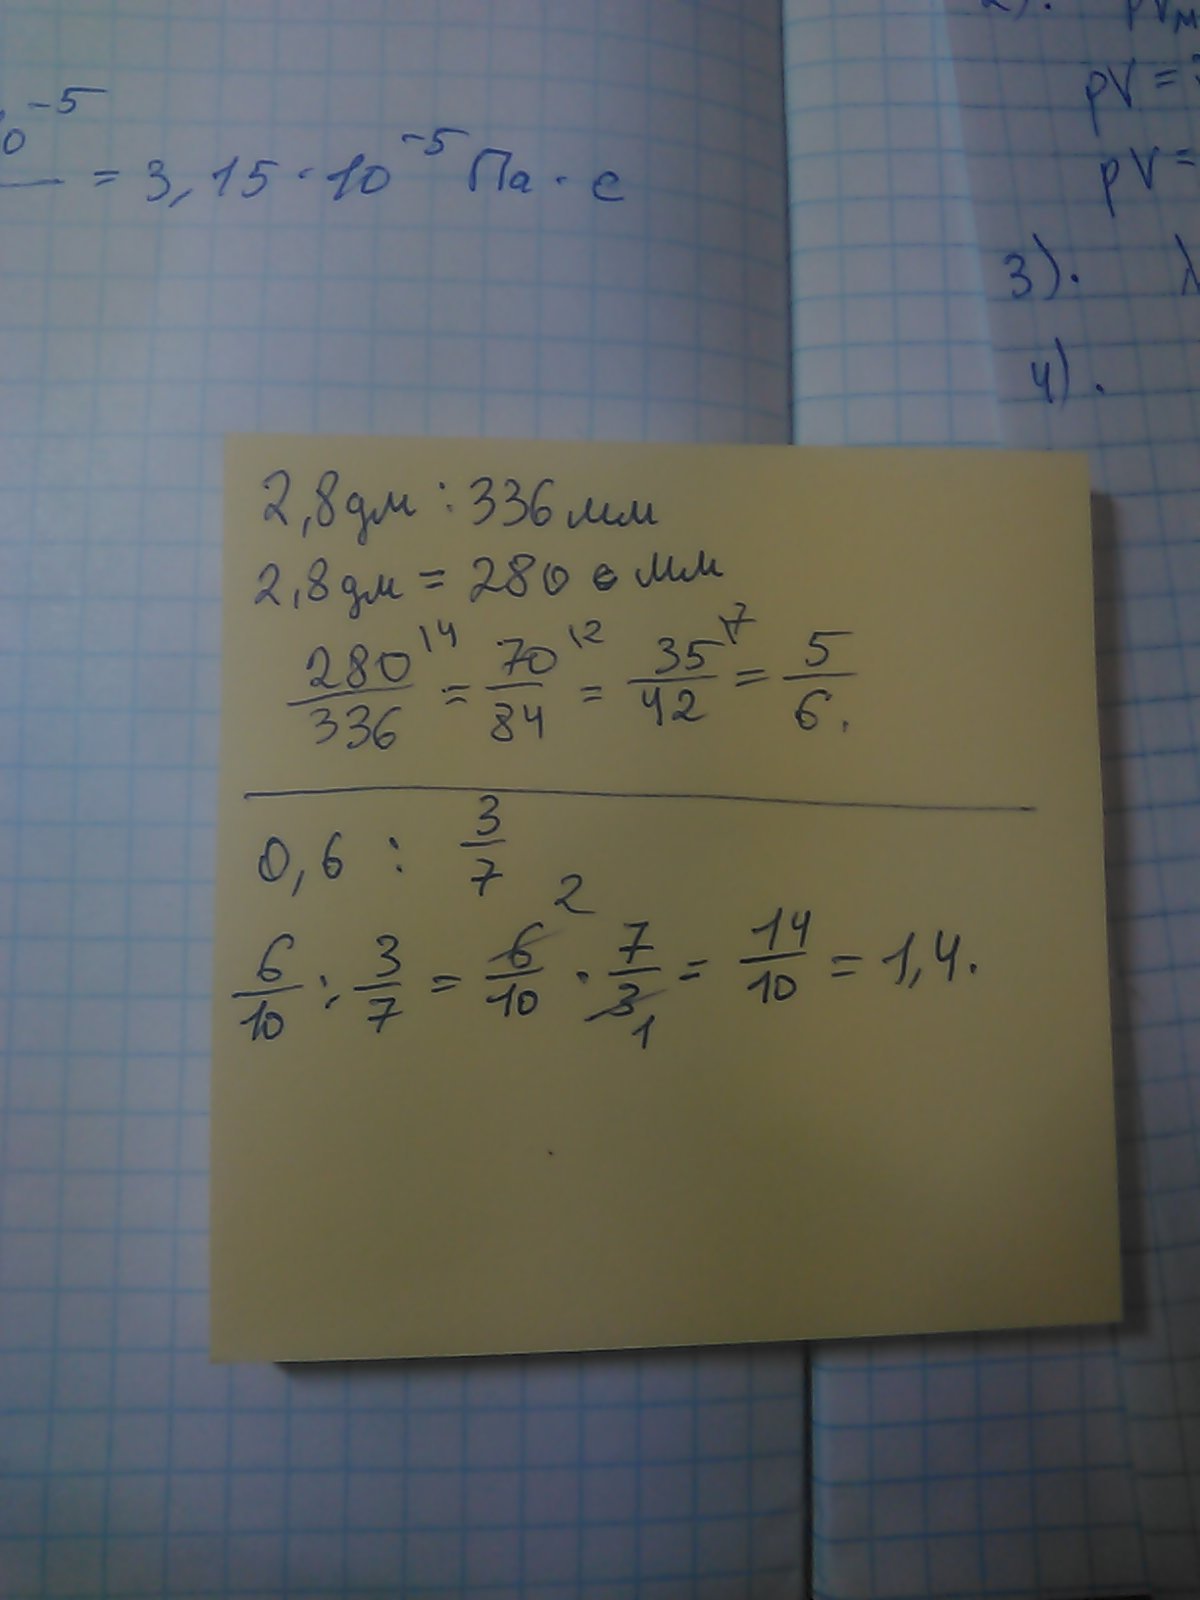 10^-5
— = 3,15 · 10^-5 Па · с
pV =
pV =
3). λ
4).
2,8 дм : 336 мм
2,8 дм = 280 мм
280/336 \4 = 70/84 \2 = 35/42 \7 = 5/6.
0,6 : 3/7
6/10 : 3/7 = 6/10 2 · 7/3 1 = 14/10 = 1,4.